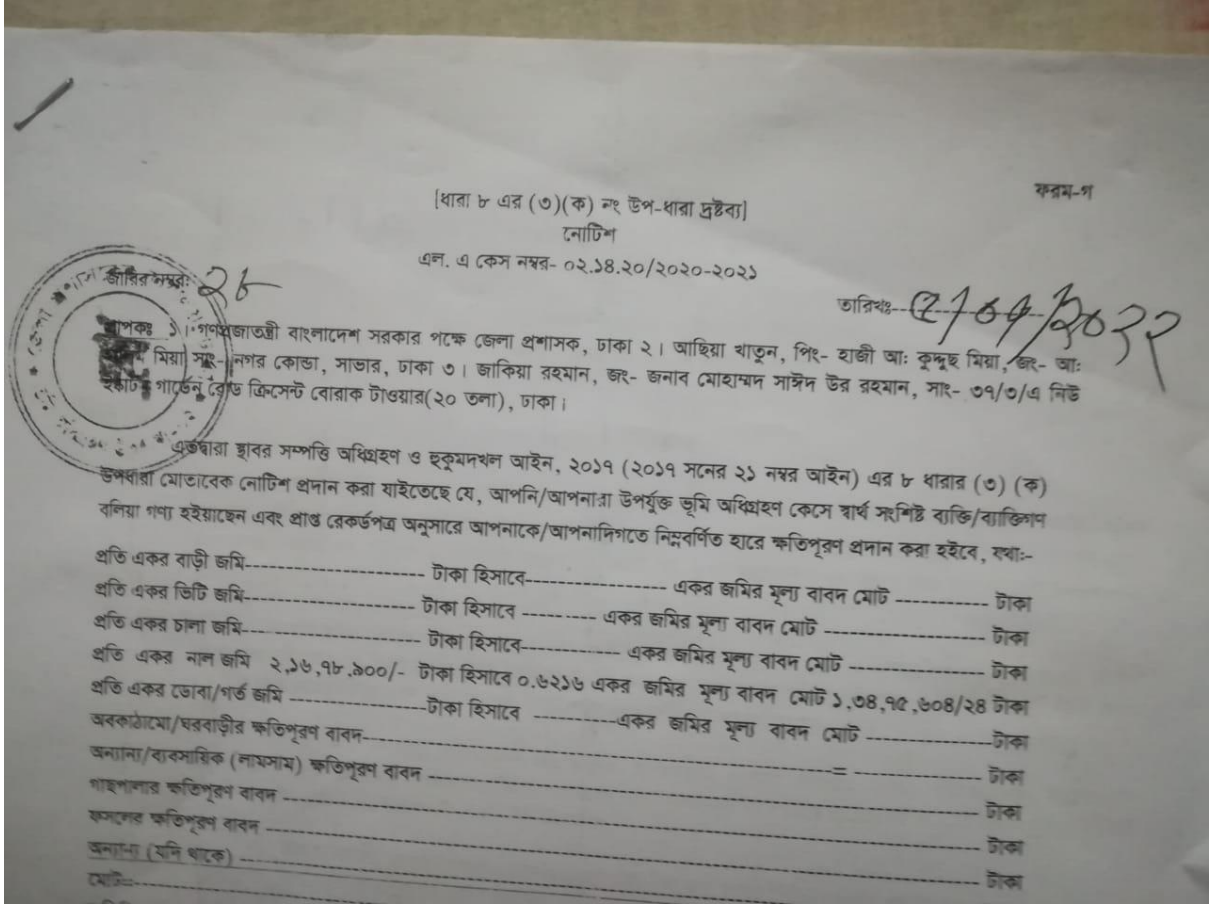 ফরম-গ
[ধারা ৮ এর (৩)(ক) নং উপ-ধারা দ্রষ্টব্য]
নোটিশ
এল. এ কেস নম্বর- ০২.১৪.২০/২০২০-২০২১
জারির নম্বর: ২৮
তারিখঃ- /০৭/২০২২
প্রাপকঃ ১। গণপ্রজাতন্ত্রী বাংলাদেশ সরকার পক্ষে জেলা প্রশাসক, ঢাকা ২। আছিয়া খাতুন, পিং- হাজী আঃ কুদ্দুছ মিয়া, জং- আঃ
মিয়া সাং- নগর কোন্ডা, সাভার, ঢাকা ৩। জাকিয়া রহমান, জং- জনাব মোহাম্মদ সাঈদ উর রহমান, সাং- ৩৭/৩/এ নিউ
ইস্কাটন গার্ডেন রোড ক্রিসেন্ট বোরাক টাওয়ার(২০ তলা), ঢাকা।
এতদ্বারা স্থাবর সম্পত্তি অধিগ্রহণ ও হুকুমদখল আইন, ২০১৭ (২০১৭ সনের ২১ নম্বর আইন) এর ৮ ধারার (৩) (ক)
উপধারা মোতাবেক নোটিশ প্রদান করা যাইতেছে যে, আপনি/আপনারা উপর্যুক্ত ভূমি অধিগ্রহণ কেসে স্বার্থ সংশিষ্ট ব্যক্তি/ব্যক্তিগণ
বলিয়া গণ্য হইয়াছেন এবং প্রাপ্ত রেকর্ডপত্র অনুসারে আপনাকে/আপনাদিগতে নিম্নবর্ণিত হারে ক্ষতিপূরণ প্রদান করা হইবে, যথাঃ-
প্রতি একর বাড়ী জমি-------------------- টাকা হিসাবে---------------- একর জমির মূল্য বাবদ মোট ------------ টাকা
প্রতি একর ভিটি জমি-------------------- টাকা হিসাবে --------- একর জমির মূল্য বাবদ মোট ------------------- টাকা
প্রতি একর চালা জমি-------------------- টাকা হিসাবে----------- একর জমির মূল্য বাবদ মোট ---------------- টাকা
প্রতি একর নাল জমি ২,১৬,৭৮,৯০০/- টাকা হিসাবে ০.৬২১৬ একর জমির মূল্য বাবদ মোট ১,৩৪,৭৫,৬০৪/২৪ টাকা
প্রতি একর ডোবা/গর্ত জমি ----------------টাকা হিসাবে ----------একর জমির মূল্য বাবদ মোট --------------টাকা
অবকাঠামো/ঘরবাড়ীর ক্ষতিপূরণ বাবদ--------------------------------------------------= -------------- টাকা
অন্যান্য/ব্যবসায়িক (নামসাম) ক্ষতিপূরণ বাবদ ---------------------------------------------------------- টাকা
গাছপালার ক্ষতিপূরণ বাবদ ------------------------------------------------------------------------ টাকা
ফসলের ক্ষতিপূরণ বাবদ -------------------------------------------------------------------------- টাকা
অন্যান্য (যদি থাকে) ------------------------------------------------------------------------------ টাকা
মোট=---------